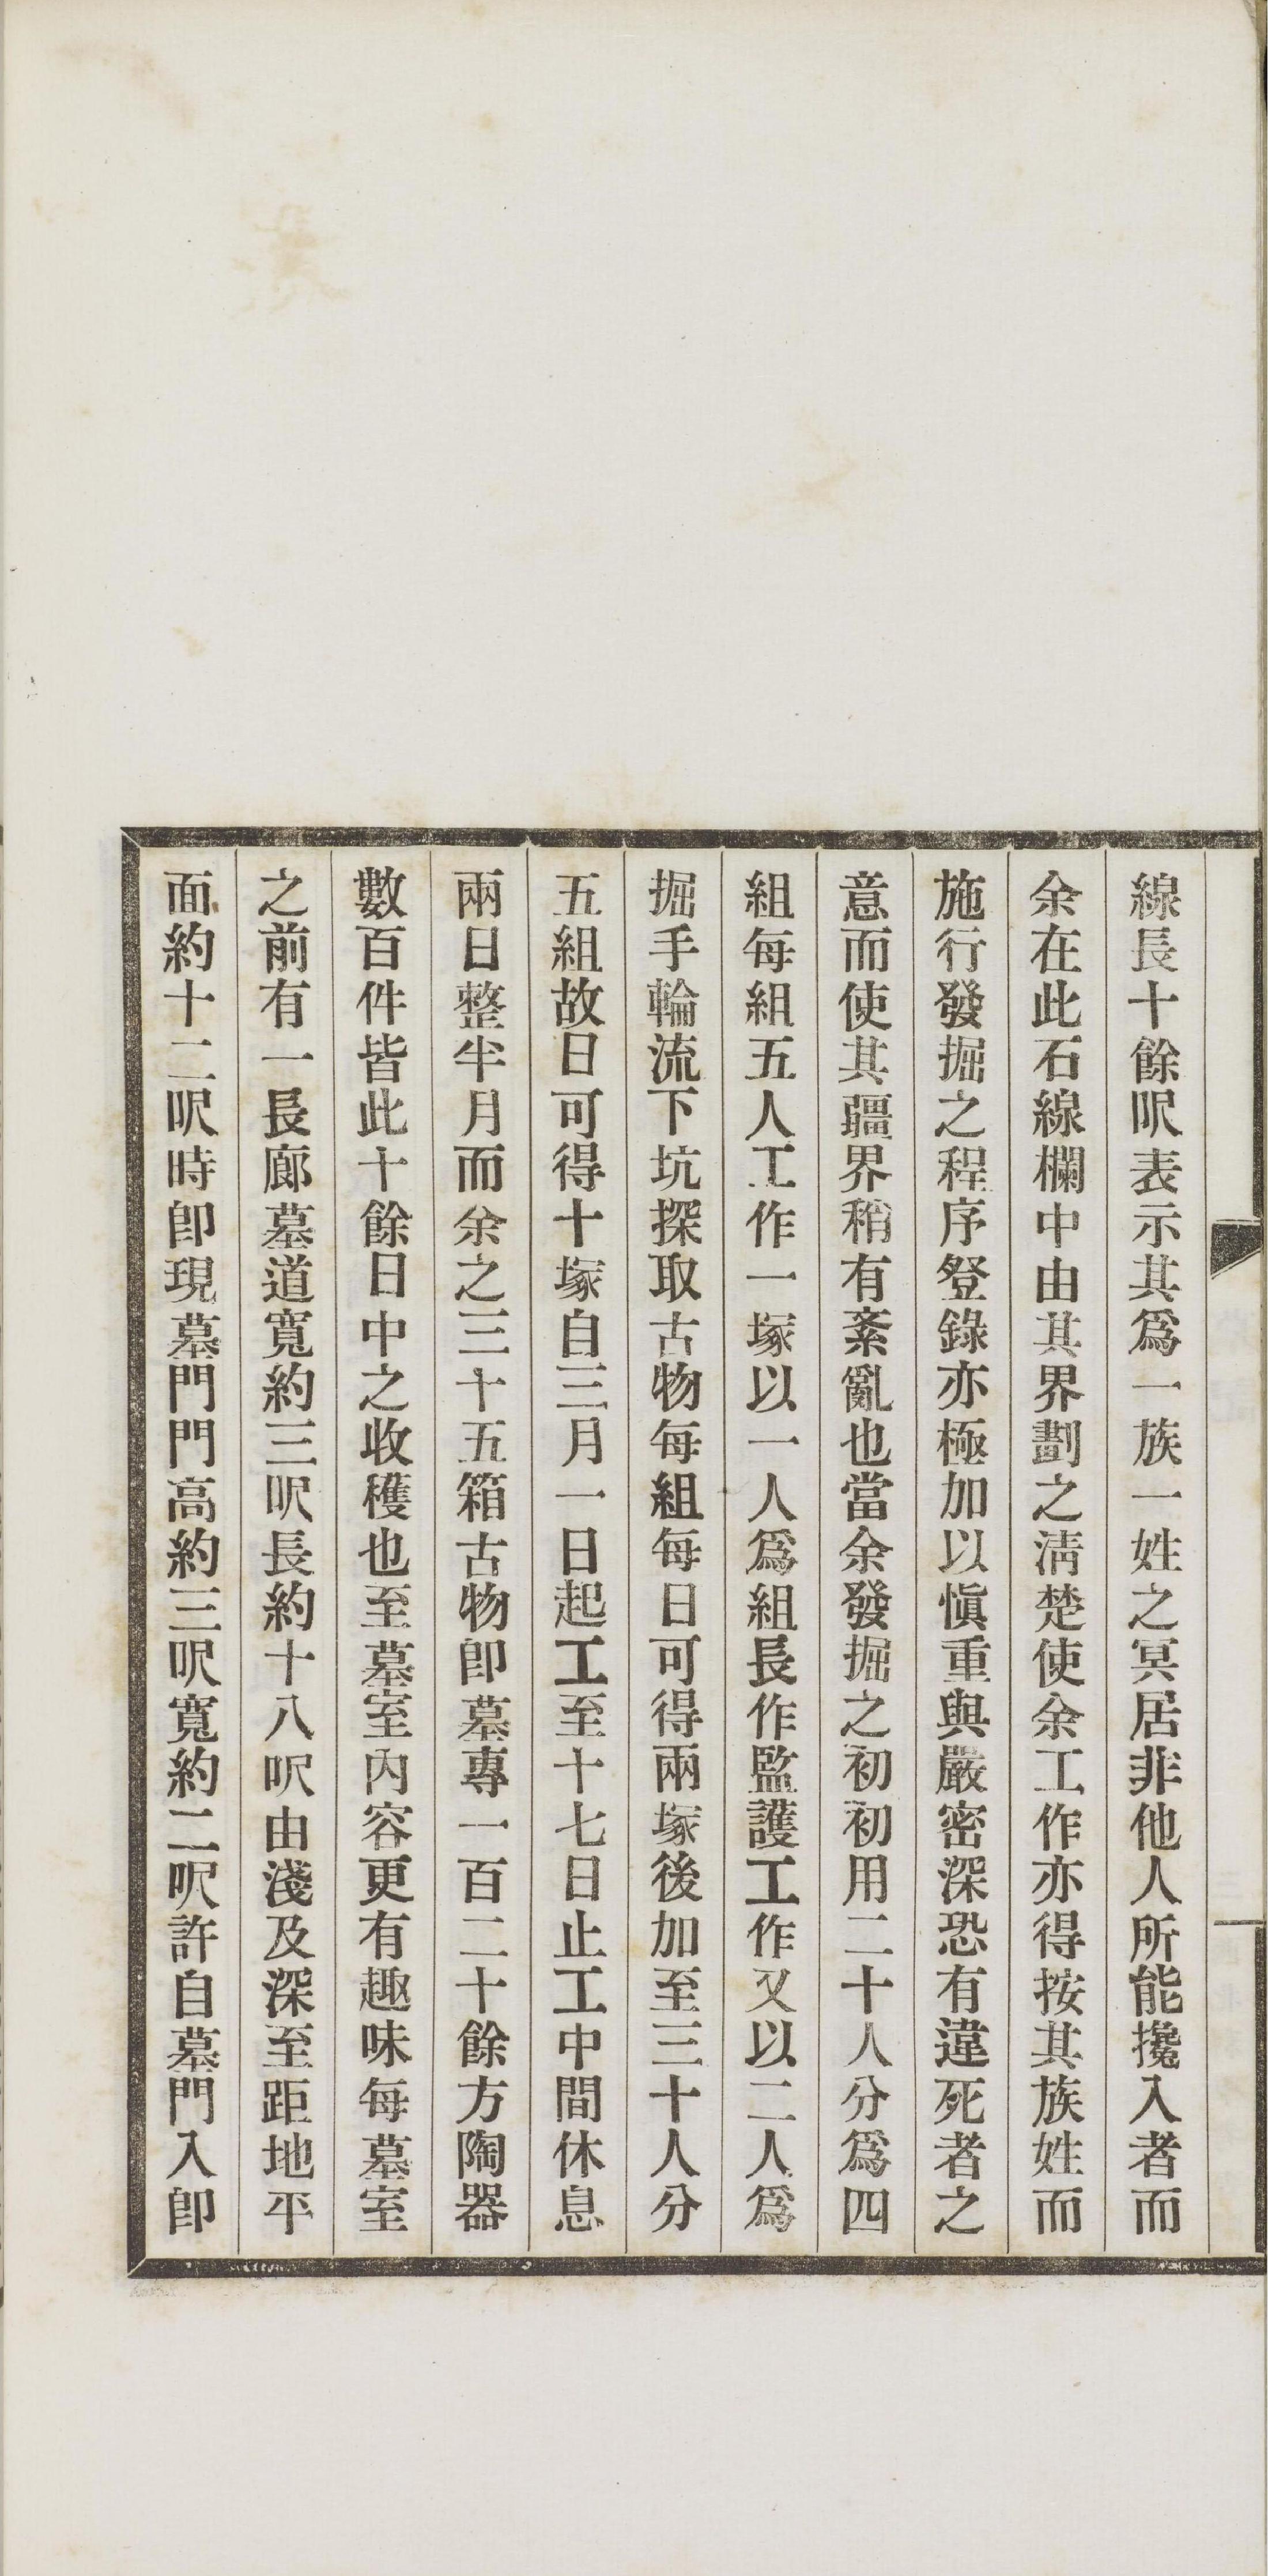 線長十餘呎表示其爲一族一姓之冥居非他人所能攙入者而
余在此石線欄中由其界劃之淸楚使余工作亦得按其族姓而
施行發掘之程序登錄亦極加以愼重與嚴密深恐有違死者之
意而使其疆界稍有紊亂也當余發掘之初初用二十人分爲四
組每組五人工作一塚以一人爲組長作監護工作又以二人爲
掘手輪流下坑探取古物每組每日可得兩塚後加至三十人分
五組故日可得十塚自三月一日起工至十七日止工中間休息
兩日整半月而余之三十五箱古物卽墓專一百二十餘方陶器
數百件皆此十餘日中之收穫也至墓室內容更有趣味每墓室
之前有一長廊墓道寬約三呎長約十八呎由淺及深至距地平
面約十二呎時卽現墓門門高約三呎寬約二呎許自墓門入卽